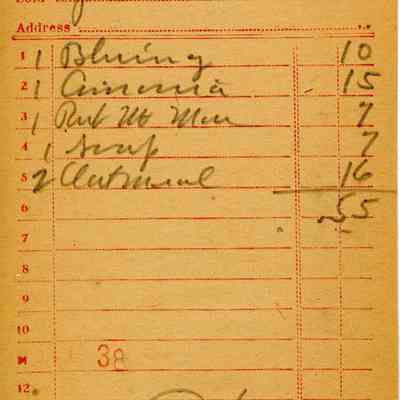 Address
1 1 Bluing 10
2 1 Amonia 15
3 1 Rub No More 7
4 1 Soap 7
5 2 Oatmeal 16
6 .55
7
8
9
10
38
12